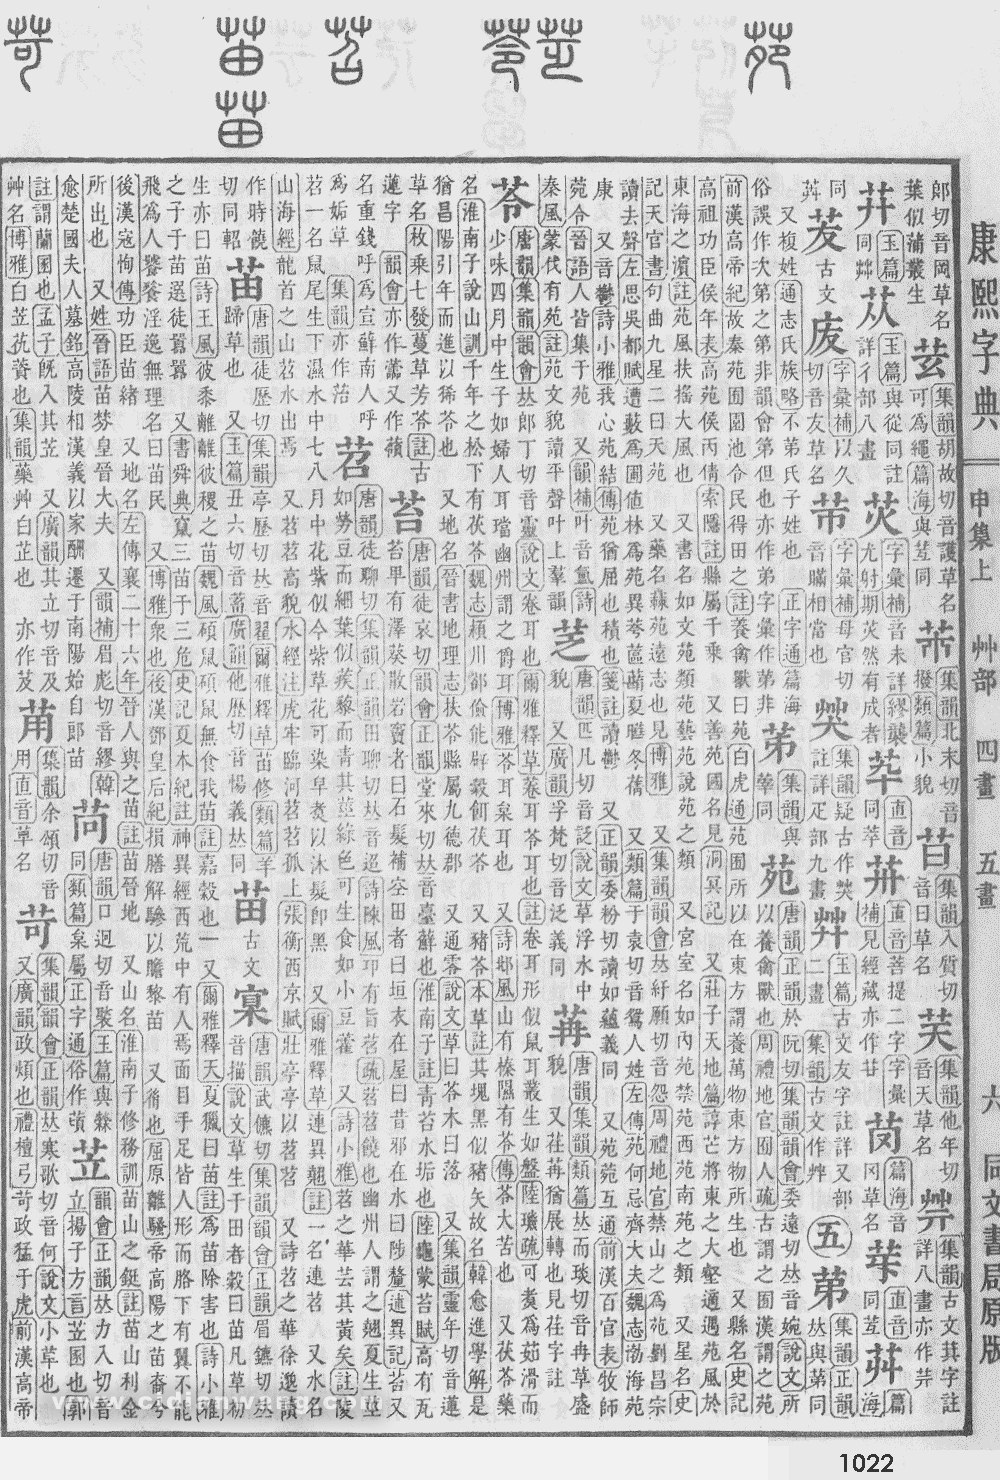 康熙字典 申集上 艸部 四畫 五畫 六 同文書局原版
郞切音岡草名
葉似蒲叢生
芸
集韻胡故切音護草名
可爲繩篇海與苙同
芾
集韻北末切音
撥類篇小貌
苜
集韻入質切
音日草名
芺
集韻他年切
音天草名
茻
集韻古文萁字註
詳八畫亦作芽
玉篇
同艸
苁
玉篇與從同註
詳彳部八畫
苂
字彙補音未詳繆襲
尤射期苂然有成者
苹
直音
同萃
苚
直音菩提二字字彙
補見經藏亦作廿
苪
篇海音
冈草名
苿
直音
同荳
茆
篇海
茇
古文
苃
字彙補以久
切音友草名
芇
字彙補母官切
音瞞相當也
集韻疑古作爽
註詳疋部九畫
艸
玉篇古文友字註詳又部
二畫 集韻古文作艸
五
苐
集韻正韻
𠀤與苐同
又複姓通志氏族略不苐氏子姓也 正字通篇海
俗誤作次第之第非韻會第但也亦作弟字彙作苐非
苐
集韻與
莘同
苑
唐韻正韻於阮切集韻韻會委遠切𠀤音婉說文所
以養禽獸也周禮地官囿人疏古謂之囿漢謂之苑
前漢高帝紀故秦苑囿園池令民得田之註養禽獸曰苑白虎通苑囿所以在東方謂養萬物東方物所生也 又縣名史記
高祖功臣侯年表高苑侯丙倩索隱註縣屬千乘 又善苑國名見洞冥記 又莊子天地篇諄芒將東之大壑適遇苑風於
東海之濵註苑風扶搖大風也 又書名如文苑類苑藝苑說苑之類 又宮室名如內苑禁苑西苑南苑之類 又星名史
記天官書句曲九星二曰天苑 又藥名蘇苑遠志也見博雅 又集韻韻會𠀤紆願切音怨周禮地官禁山之爲苑劉昌宗
讀去聲左思吳都賦遭藪爲圃値林爲苑異荂蓲蘛夏曄冬蒨 又類篇于袁切音鴛人姓左傳苑何忌齊大夫魏志渤海苑
康 又音鬱詩小雅我心苑結傳苑猶屈也積也箋註讀鬱 又正韻委粉切切讀如蘊義同 又苑苑互通前漢百官表牧師
菀令晉語人皆集于苑 又韻補叶音氳詩
秦風蒙伐有苑註苑文貌讀平聲叶上羣韻
芝
唐韻匹凡切音䒦說文草浮水中
貌 又廣韻孚梵切音泛義同
苒
唐韻集韻類篇𠀤而琰切音冉草盛
貌 又荏苒猶展轉也見荏字註
苓
唐韻集韻韻會𠀤郞丁切音靈說文卷耳也爾雅釋草蒼耳苓耳也註卷耳形似鼠耳叢生如盤陸璣疏可煮爲茹滑而
少味四月中生子如婦人耳璫幽州謂之爵耳博雅苓耳枲耳也 又詩邶風山有榛隰有苓傳苓大苦也 又茯苓藥
名淮南子說山訓千年之松下有茯苓魏志潁川郤儉能辟穀餌茯苓 又豬苓本草註其塊黑似豬矢故名韓愈進學解是
猶昌陽引年而進以豨苓也 又地名晉書地理志扶苓縣屬九德郡 又通零說文草曰苓木曰落 又集韻靈年切音蓮
草名枚乘七發蔓草芳苓註古
蓮字 韻會亦作蘦又作蘋
苔
唐韻徒哀切韻會正韻堂來切𠀤音臺蘚也淮南子註青苔水垢也陸龜蒙苔賦高有瓦
苔卑有澤葵散若竇者曰石髮補空田者曰垣衣在屋曰昔邪在水曰陟釐述異記苔又
名重錢呼爲宣蘚南人呼
爲垢草 集韻亦作治
苕
唐韻徒聊切集韻正韻田聊切𠀤音迢詩陳風卭有旨苕疏苕苕饒也幽州人謂之翹夏生莖
如勞豆而細葉似蒺藜而青其莖綠色可生食如小豆藿 又詩小雅苕之華芸其黃矣註陵
苕一名鼠尾生下濕水中七八月中花紫似今紫草花可染皁煑以沐髮卽黑 又爾雅釋草連異翹註一名連苕 又水名
山海經龍首之山苕水出焉 又苕苕高貌水經注虎牢臨河苕苕孤上張衡西京賦壯亭亭以苕苕 又詩苕之華徐邈讀
作時饒
切同軺
苖
唐韻徒歷切集韻亭歷切𠀤音翟爾雅釋草苖蓨類篇羊
蹄草也 又玉篇丑六切音蓄廣韻他歷切音惕義𠀤同
苗
古文
𥤗
唐韻武儦切集韻韻會正韻眉鑣切𠀤
音描說文草生于田者穀曰苗凡草初
生亦曰苗詩王風彼黍離離彼稷之苗魏風碩鼠碩鼠無食我苗註嘉穀也一 又爾雅釋天夏獵曰苗註爲苗除害也詩小雅
之子于苗選徒囂囂 又書舜典竄三苗于三危史記夏本紀註神異經西荒中有人焉面目手足皆人形而胳下有翼不能
飛爲人饕餮淫逸無理名曰苗民 又博雅衆也後漢鄧皇后紀損膳解驂以贍黎苗 又裔也屈原離騷帝高陽之苗裔兮
後漢寇恂傳功臣苗緖 又地名左傳襄二十六年晉人與之苗註苗晉地 又山名淮南子修務訓苗山之鋌註苗山利金
所出也 又姓晉語苗棼皇晉大夫 又韻補眉彪切音繆韓
愈楚國夫人墓銘高陵相漢義以家酬遷于南陽始自郞苗
苘
唐韻口迥切音褧玉篇與檾
同類篇枲屬正字通俗作䔛
苙
韻會正韻𠀤力入切音
立揚子方言苙圂也郭
註謂蘭圂也孟子旣入其苙 又廣韻其立切音及
艸名博雅白苙茋䕲也集韻藥艸白芷也 亦作芨
苚
集韻余頌切音
用直音草名
苛
集韻韻會正韻𠀤寒歌切音何說文小草也
又廣韻政煩也禮檀弓苛政猛于虎前漢高帝
1022